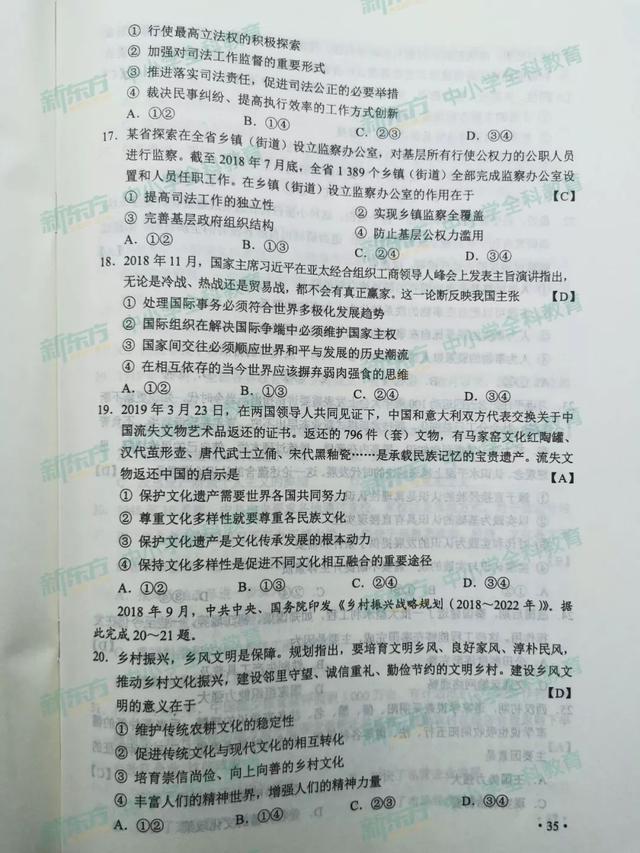 ① 行使最高立法权的积极探索
② 加强对司法工作监督的重要形式
③ 推进落实司法责任，促进司法公正的必要举措
④ 裁决民事纠纷、提高执行效率的工作方式创新
A. ①② B. ①④ C. ②③ D. ③④
17. 某省探索在全省乡镇（街道）设立监察办公室，对基层所有行使公权力的公职人员
进行监察。截至 2018 年 7 月底，全省 1 389 个乡镇（街道）全部完成监察办公室设
置和人员任职工作。在乡镇（街道）设立监察办公室的作用在于 【C】
① 提高司法工作的独立性 ② 实现乡镇监察全覆盖
③ 完善基层政府组织结构 ④ 防止基层公权力滥用
A. ①② B. ①③ C. ②④ D. ③④
18. 2018 年 11 月，国家主席习近平在亚太经合组织工商领导人峰会上发表主旨演讲指出，
无论是冷战、热战还是贸易战，都不会有真正赢家。这一论断反映我国主张 【D】
① 处理国际事务必须符合世界多极化发展趋势
② 国际组织在解决国际争端中必须维护国家主权
③ 国家间交往必须顺应世界和平与发展的历史潮流
④ 在相互依存的当今世界应该摒弃弱肉强食的思维
A. ①② B. ①③ C. ②④ D. ③④
19. 2019 年 3 月 23 日，在两国领导人共同见证下，中国和意大利双方代表交换关于中
国流失文物艺术品返还的证书。返还的 796 件（套）文物，有马家窑文化红陶罐、
汉代茧形壶、唐代武士立俑、宋代黑釉瓷……是承载民族记忆的宝贵遗产。流失文
物返还中国的启示是 【A】
① 保护文化遗产需要世界各国共同努力
② 尊重文化多样性就要尊重各民族文化
③ 保护文化遗产是文化传承发展的根本动力
④ 保持文化多样性是促进不同文化相互融合的重要途径
A. ①② B. ①③ C. ②④ D. ③④
2018 年 9 月，中共中央、国务院印发《乡村振兴战略规划（2018～2022 年）》。据
此完成 20～21 题。
20. 乡村振兴，乡风文明是保障。规划指出，要培育文明乡风、良好家风、淳朴民风，
推动乡村文化振兴，建设邻里守望、诚信重礼、勤俭节约的文明乡村。建设乡风文
明的意义在于 【D】
① 维护传统农耕文化的稳定性
② 促进传统文化与现代文化的相互转化
③ 培育崇信尚俭、向上向善的乡村文化
④ 丰富人们的精神世界，增强人们的精神力量
A. ①② B. ①③ C. ②④ D. ③④
· 35 ·
新东方 中小学全科教育